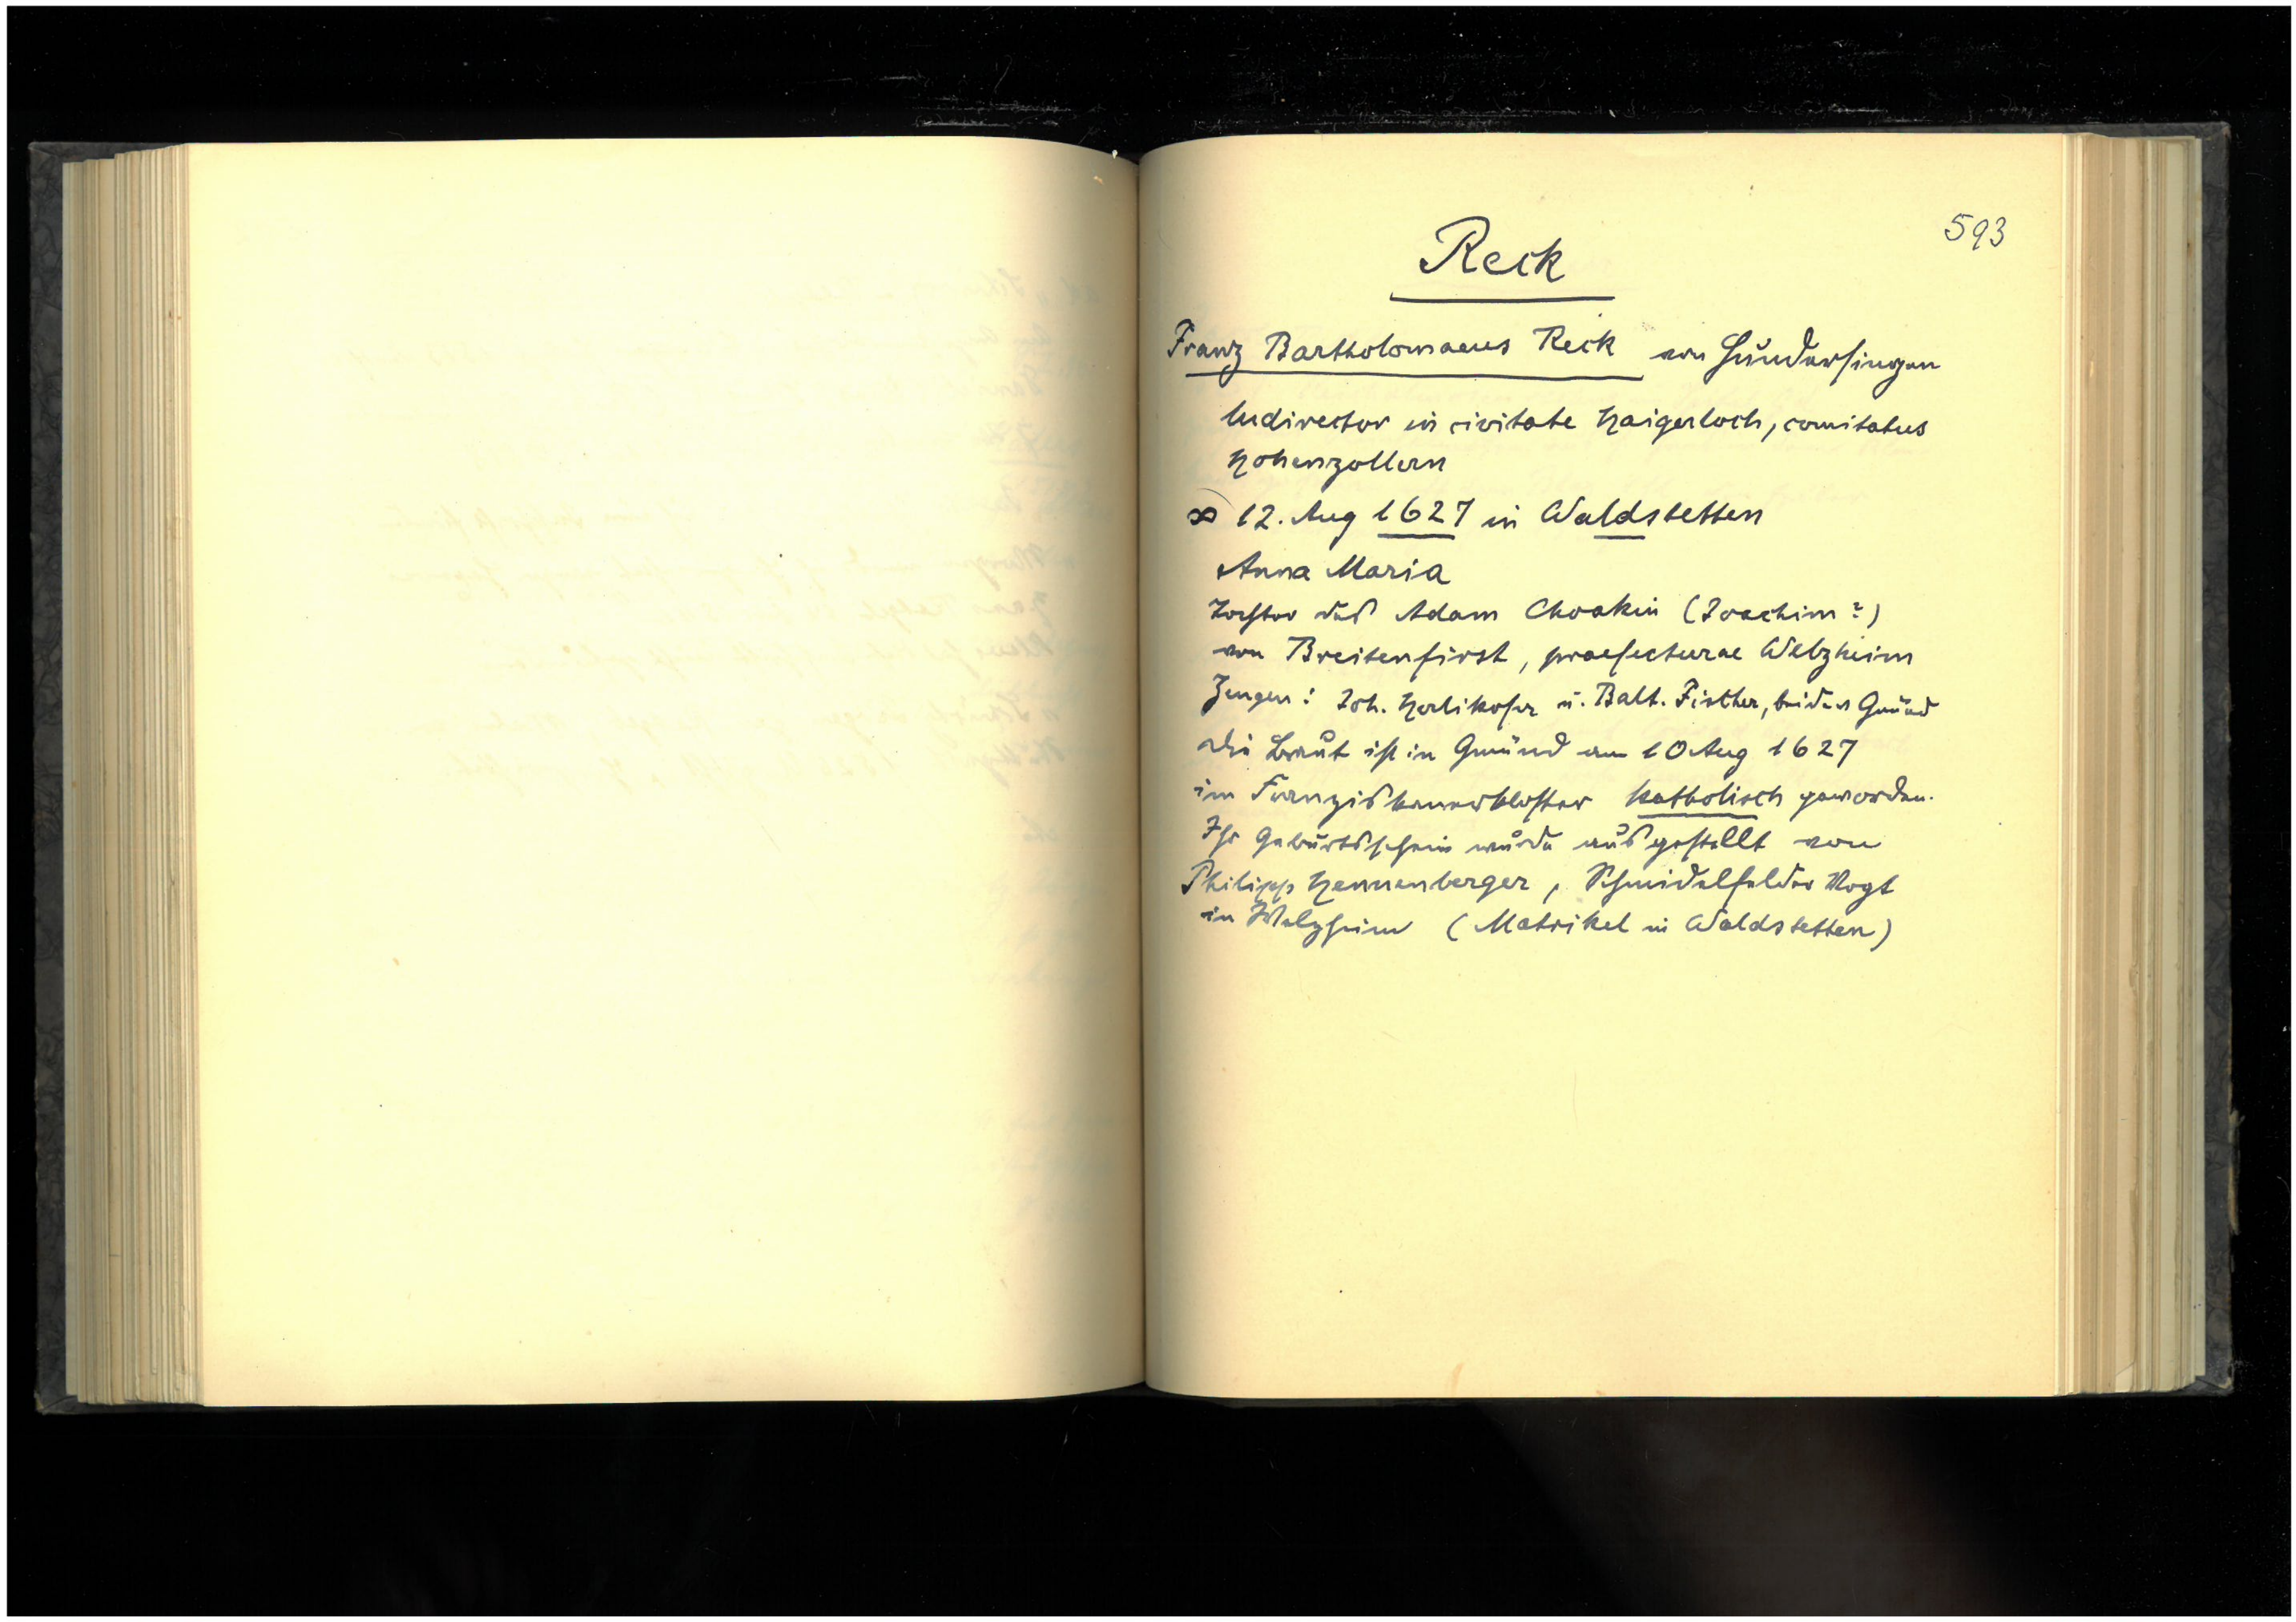 593
Reck
Franz Bartholomaeus Reck von Hundersingen
ludirector in civitate Haigerloch, comitatus
Hohenzollern
∞ 12. Aug 1627 in Waldstetten
Anna Maria
Tochter des Adam Choakin (Joachim?)
von Breitenfirst, praefecturae Welzheim
Zeugen: Joh. Herlikofer u. Balt. Fischer, beide v Gmünd
Die Braut ist in Gmünd am 10 Aug 1627
im Franziskanerkloster katholisch geworden.
Ihr Geburtsschein wurde ausgestellt von
Philipp Hennenberger, Schmidelfelder Vogt
in Welzheim (Matrikel in Waldstetten)